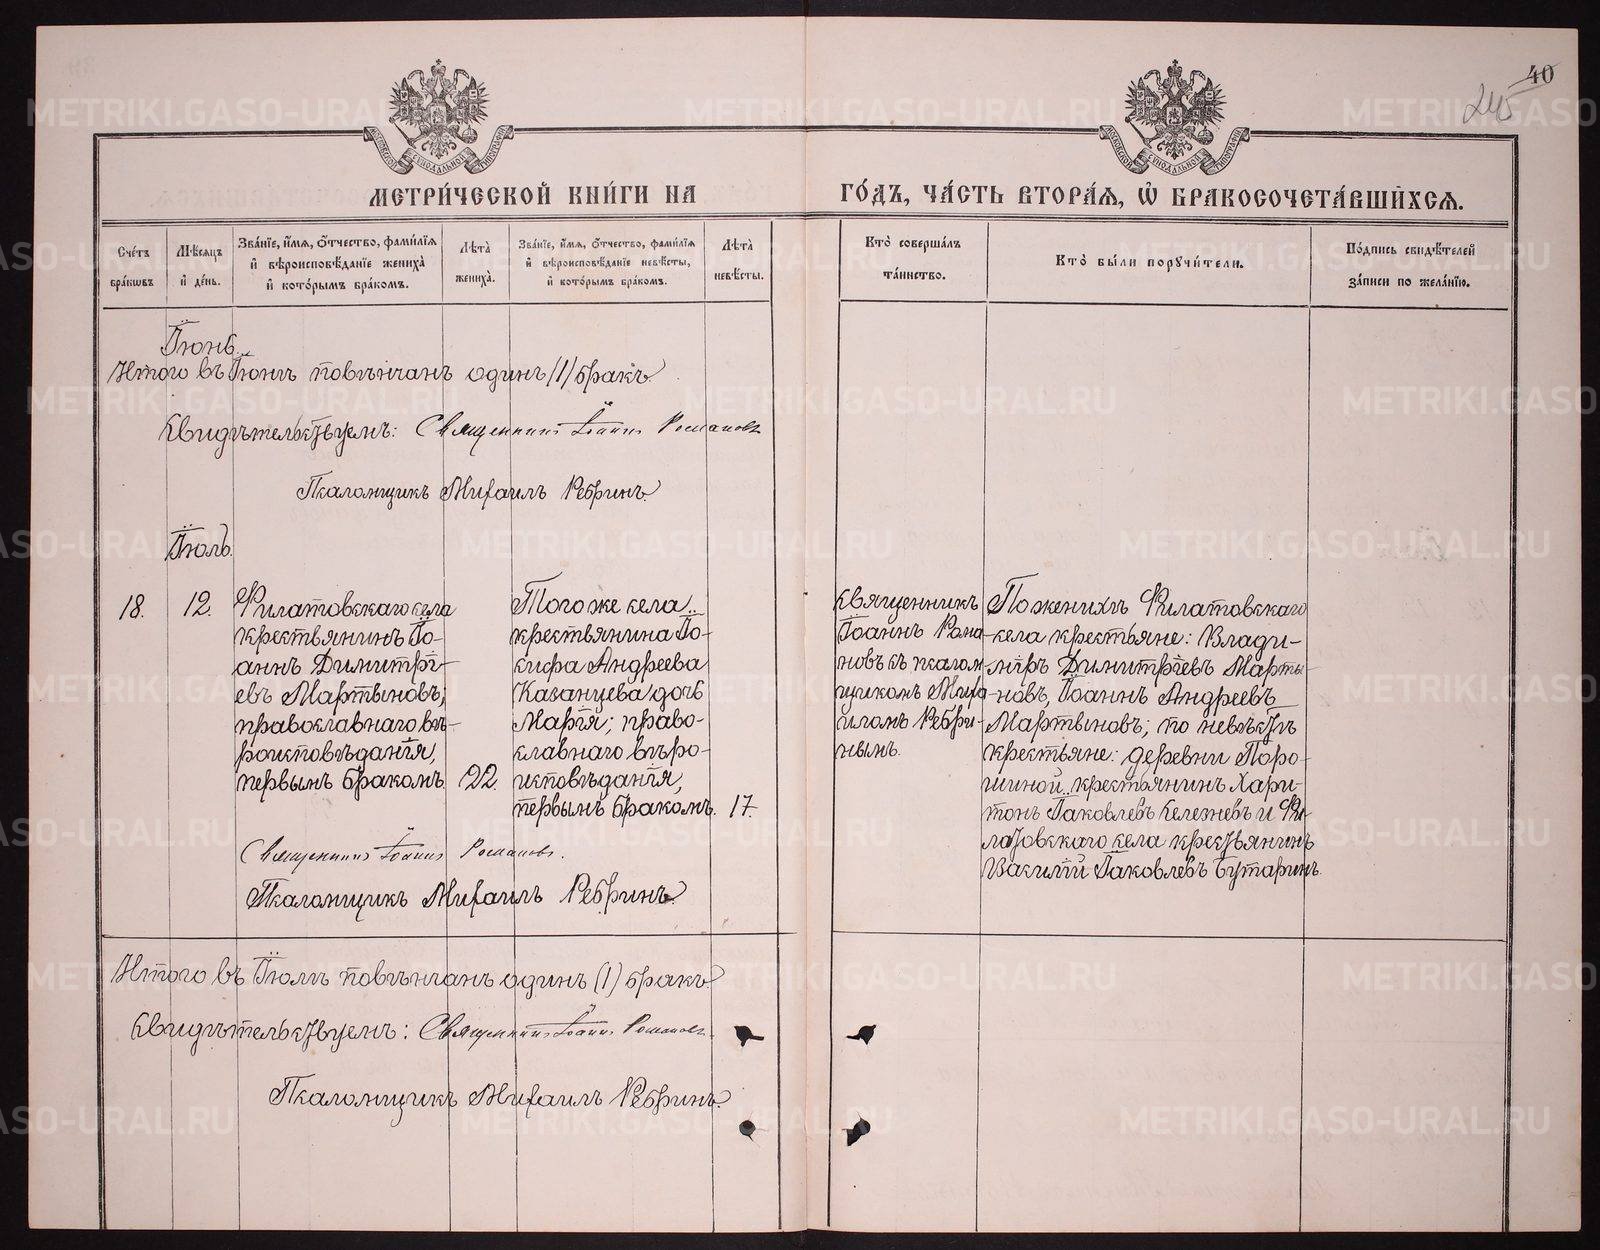 40
245
МОСКОВСКОЙ СѴНОДАЛЬНОЙ ТИПОГРАФІИ
МОСКОВСКОЙ СѴНОДАЛЬНОЙ ТИПОГРАФІИ
МЕТРИ́ЧЕСКОЙ КНИ́ГИ НА ГО́ДЪ, ЧА́СТЬ ВТОРА́Я, Ѡ҆ БРАКОСОЧЕТА́ВШИХСЯ.
Сче́тъ бра́кѡвъ
Мѣ́сяцъ и҆ де́нь.
Зва́нїе, и҆́мя, ѻ҆́тчество, фами́лїя
и҆ вѣроисповѣ́данїе жениха̀
и҆ кото́рымъ бра́комъ.
Лѣ́та жениха̀.
Зва́нїе, и҆́мя, ѻ҆́тчество, фами́лїя
и҆ вѣроисповѣ́данїе невѣ́сты,
и҆ кото́рымъ бра́комъ.
Лѣ́та невѣ́сты.
Кто̀ соверша́лъ
та́инство.
Кто̀ бы́ли порꙋчи́тели.
По́дпись свидѣ́телей
за́писи по жела́нїю.
Іюнь
Итого въ Іюнѣ повѣнчанъ одинъ (1) бракъ.
Свидѣтельствуемъ: Священникъ Іоаннъ Романовъ
Псаломщикъ Михаилъ Ребринъ.
Іюль.
18.
12.
Филатовскаго села
крестьянинъ Іо-
аннъ Димитрі-
евъ Мартьяновъ,
православнаго вѣ-
роисповѣданія,
первымъ бракомъ.
22.
Того же села
крестьянина Іо-
сифа Андреева
Казанцева дочь
Марія; право-
славнаго вѣро-
исповѣданія,
первымъ бракомъ.
17.
Священникъ
Іоаннъ Рома-
новъ съ псалом-
щикомъ Миха-
иломъ Ребри-
нымъ.
По женихѣ Филатовскаго
села крестьяне: Влади-
міръ Димитріевъ Мартья-
новъ, Іоаннъ Андреевъ
Мартьяновъ; по невѣстѣ
крестьяне: деревни Поро-
шиной крестьянинъ Хари-
тонъ Іаковлевъ Селезневъ и Фи-
латовскаго села крестьянинъ
Василій Іаковлевъ Бутаринъ.
Священникъ Іоаннъ Романовъ.
Псаломщикъ Михаилъ Ребринъ.
Итого въ Іюлѣ повѣнчанъ одинъ (1) бракъ.
Свидѣтельствуемъ: Священникъ Іоаннъ Романовъ.
Псаломщикъ Михаилъ Ребринъ.
METRIKI.GASO-URAL.RU